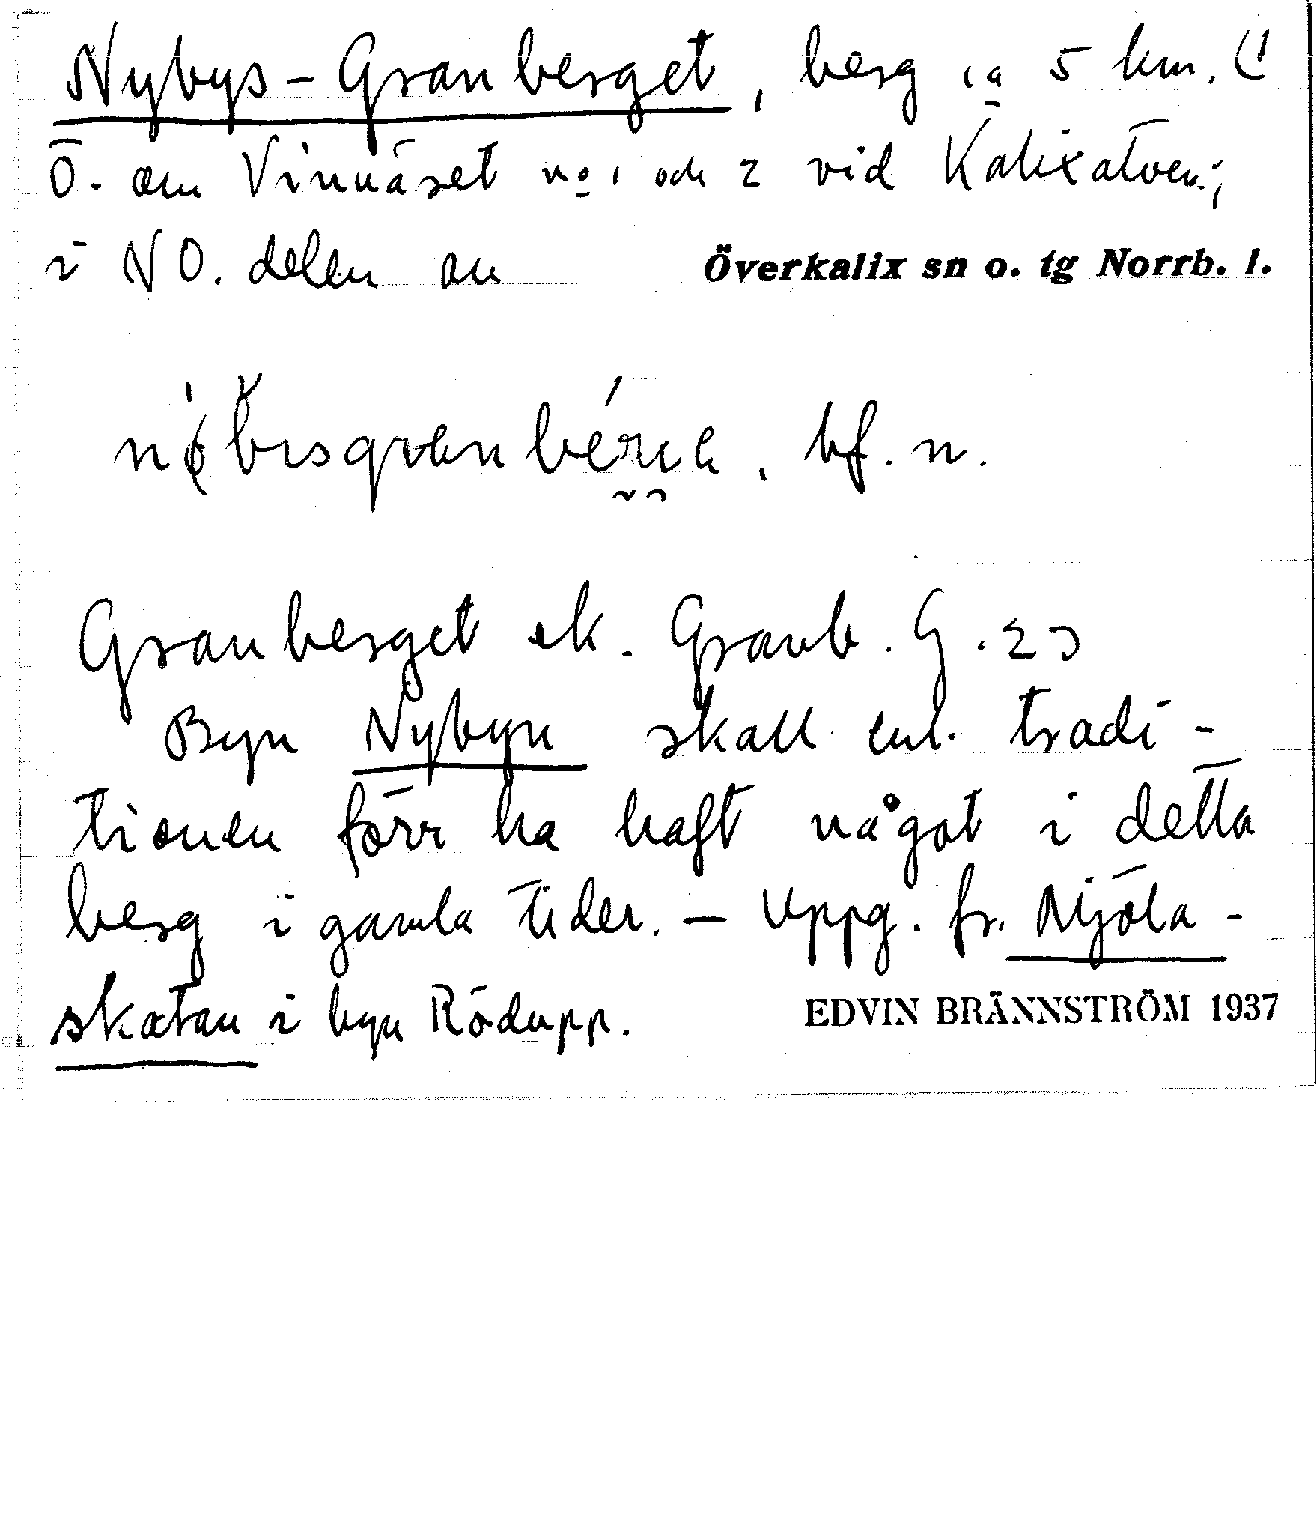 Nybys-Granberget, berg ca 5 km. (!
Ö. om Vinnäset no 1 och 2 vid Kalixälven;
i NO. delen av Överkalix sn o. tg Norrb. l.
bf. n.
Granberget ek. Granb. G. 23
Byn Nybyn skall enl. tradi-
tionen förr ha haft något i detta
berg i gamla tider. — Uppg. fr. Mjöla-
skatan i byn Rödupp.
EDVIN BRÄNNSTRÖM 1937